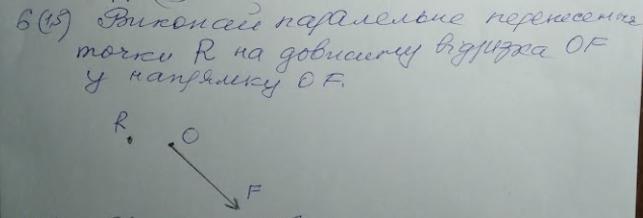 6(1,5) Виконай паралельне перенесення
точки R на довжину відрізка OF
у напрямку OF.
R
O
F